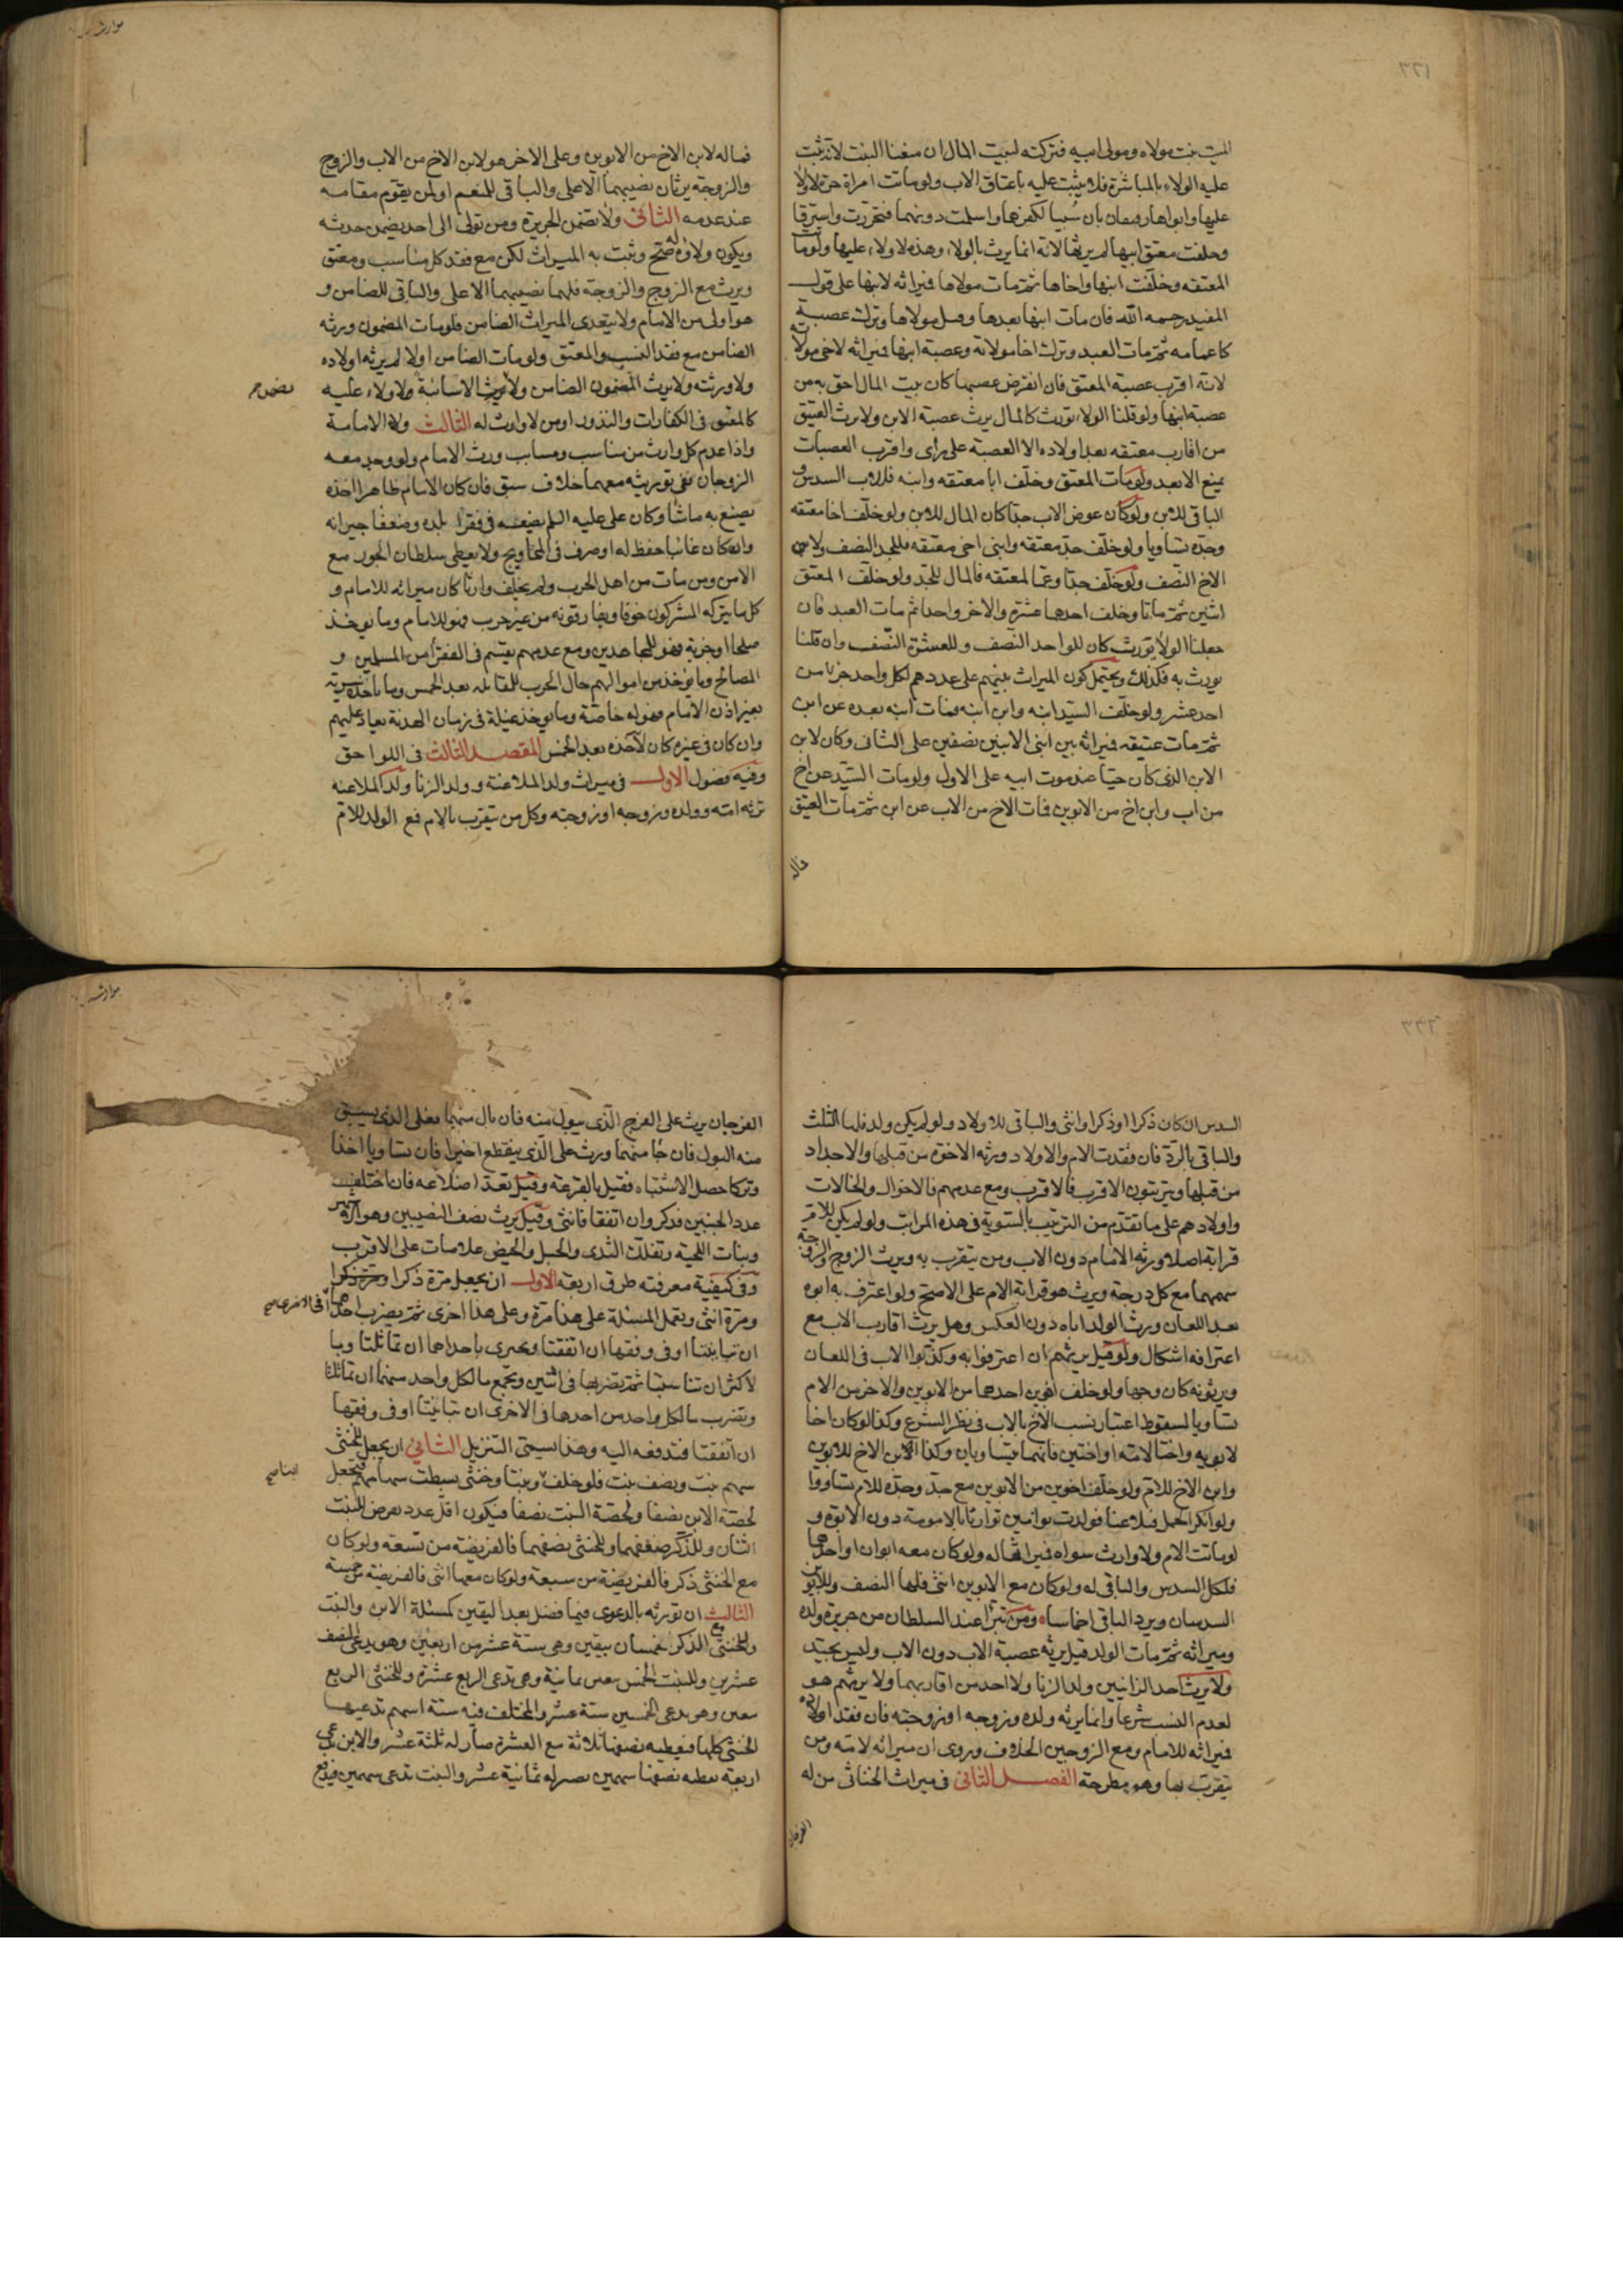 ٣٣١
الميت بنت مولاه ومولى ابيه فتركته لبيت المال ان منعنا البنت لانه ثبت
عليه الولاء بالمباشرة فلا يثبت عليه باعتاق الاب ولو ماتت امراة حرة لا ولاء
عليها وابواها رقيقان بان سبيا لكفرهما واسلمت دونهما فتحررت واسترقا
وخلفت معتق ابيها لم يرثها لانه انما يرث بالولاء وهذه لا ولاء عليها ولو ماتت
المعتقه وخلفت ابنها واخاها ثم مات مولاها فميراثه لابنها على قول
المفيد رحمه الله فان مات ابنها بعدها وقبل مولاها وترك عصبة
كاعمامه ثم مات العبد وترك اخا مولاته وعصبة ابنها فميراثه لاخى مولاته
لانه اقرب عصبة المعتق فان انقرض عصبها كان بيت المال احق به من
عصبة ابنها ولو قلنا الولاء تورث كالمال يرث عصبة الابن ولا يرث العتيق
من اقارب معتقه بعد اولاده الا العصبة على راى واقرب العصبات
يمنع الابعد ولو مات المعتق وخلف ابا معتقه وابنه فللاب السدس و
الباقى للابن ولو كان عوض الاب جدا كان المال للابن ولو خلف اخا معتقه
وجده تساويا ولو خلف جد معتقه وابنى اخى معتقه فللجد النصف ولابنى
الاخ النصف ولو خلف جدا وعما لمعتقه فالمال للجد ولو خلف المعتق
اثنين ثم ماتا وخلف احدهما عشرة والاخر واحدا ثم مات العبد فان
جعلنا الولاء يورث كان للواحد النصف وللعشرة النصف وان قلنا
يورث به فكذلك ويحتمل كون الميراث بينهم على عددهم لكل واحد جزء من
احد عشر ولو خلف السيد ابنه وابن ابنه فمات ابنه بعده عن ابن
ثم مات عتيقه فميراثه بين ابنى الابنين نصفين على الثانى وكان لابن
الابن الذى كان حيا عند موت ابيه على الاول ولو مات السيد عن اخ
من اب وابن اخ من الابوين فمات الاخ من الاب عن ابن ثم مات العتيق
فماله
فماله لابن الاخ من الابوين وعلى الاخر هو لابن الاخ من الاب والزوج
والزوجة يرثان نصيبهما الاعلى والباقى للمنعم او لمن يقوم مقامه
عند عدمه الثانى ولاء تضمن الجريرة ومن توالى الى احد يضمن حدثه
ويكون ولاؤه له صح ويثبت به الميراث لكن مع فقد كل مناسب ومعتق
ويرث مع الزوج والزوجة فلهما نصيبهما الاعلى والباقى للضامن و
هو اولى من الامام ولا يتعدى الميراث الضامن فلو مات المضمون ورثه
الضامن مع فقد النسب والمعتق ولو مات الضامن اولا لم يرثه اولاده
ولا ورثته ولا يرث المضمون الضامن ولا يرث الا سائبة ولا ولاء عليه
كالمعتق فى الكفارات والنذور او من لا وارث له الثالث ولاء الامامة
واذا عدم كل وارث من مناسب ومسابب ورث الامام ولو وجد معه
الزوجان ففى توريثه معهما خلاف سبق فان كان الامام ظاهرا اخذه
يصنع به ما شاء وكان على عليه السلم يضيعه فى فقراء بلده وضعفاء جيرانه
وان كان غائبا حفظ له او صرف فى المحاويج ولا يعطى سلطان الجور مع
الامن ومن مات من اهل الحرب ولم يخلف وارثا كان ميراثه للامام و
كل ما يتركه المشركون خوفا ويفارقونه من غير حرب فهو للامام وما يوخذ
صلحا او جزية فهو للمجاهدين ومع عدمهم يقسم فى الفقراء من المسلمين و
المصالح وما يوخذ من اموالهم حال الحرب للمقاتله بعد الخمس وما ياخذه سرية
بغير اذن الامام فهو له خاصة وما يوخذ غيلة فى زمان الهدنة يعاد عليهم
وان كان فى غيره كان لآخذه بعد الخمس المقصد الثالث فى اللواحق
وفيه فصول الاول فى ميراث ولد الملاعنة وولد الزنا ولد الملاعنه
ترثه امته وولده وزوجه او زوجته وكل من يتقرب بالام فمع الولد للام
السدس ان كان ذكرا او ذكرا وانثى والباقى للاولاد ولو لم يكن ولد فلها الثلث
والباقى بالرد فان فقدت الام والاولاد ورثه الاخوة من قبلها والاجداد
من قبلها ويترتبون الاقرب فالاقرب ومع عدمهم فالاخوال والخالات
واولادهم على ما تقدم من الترتيب بالسوية فى هذه المراتب ولو لم يكن للام
قرابة اصلا ورثه الامام دون الاب ومن يتقرب به ويرث الزوج والزوجة
سهمهما مع كل درجة ويرث هو قرابة الام على الاصح ولو اعترف به ابوه
بعد اللعان ورث الولد اباه دون العكس وهل يرث اقارب الاب مع
اعترافه اشكال ولو قيل يرثهم ان اعترفوا به وكذبوا الاب فى اللعان
ويرثونه كان وجها ولو خلف اخوين احدهما من الابوين والاخر من الام
تساويا لسقوط اعتبار نسب الاخ بالاب فى نظر الشرع وكذا لو كان اخا
لابويه واختا لامه او اختين فانهما يتساويان وكذا ابن الاخ للابوين
وابن الاخ للام ولو خلف اخوين من الابوين مع جد وجدة للام تساووا
ولو انكر الحمل فتلاعنا فولدت توامين توارثا بالامومة دون الابوة و
لو ماتت الام ولا وارث سواه فميراثها له ولو كان معه ابوان او احدهما
فلكل السدس والباقى له ولو كان مع الابوين انثى فلها النصف وللابوين
السدسان ويرد الباقى اخماسا ومن تبرا عند السلطان من جريرة ولده
وميراثه ثم مات الولد قيل يرثه عصبة الاب دون الاب وليس بجيد
ولا يرث احد الزانيين ولد الزنا ولا احد من اقاربهما ولا يرثهم هو
لعدم النسب شرعا وانما يرثه ولده وزوجه او زوجته فان فقد اولاده
فميراثه للامام ومع الزوجين الخلاف وروى ان ميراثه لامه ومن
يتقرب بها وهو مطرحة الفصل الثانى فى ميراث الخناثى من له
الفرجان
الفرجان يرث على الفرج الذى يبول منه فان بال منهما فعلى الذى يسبق
منه البول فان جاء منهما ورث على الذى ينقطع اخيرا فان تساويا اخذا
وتركا حصل الاشتباه فقيل بالقرعة وقيل تعد اضلاعه فان اختلف
عدد الجنبين فذكر وان اتفقا فانثى وقيل يرث نصف النصيبين وهو الاشهر
ونبات اللحية وتفلك الثدى والحبل والحيض علامات على الاقرب
وفى كيفية معرفته طرق اربعة الاول ان يجعل مرة ذكرا
ومرة انثى وتعمل المسئلة على هذا مرة وعلى هذا اخرى ثم يضرب احداهما فى الاخرى صح
ان تباينتا او فى وفقها ان اتفقتا ويجزى باحداهما ان تماثلتا وبا
لاكثر ان تناسبتا ثم تضربها فى اثنين وتجمع ما لكل واحد منهما ان تماثلتا
وتضرب ما لكل واحد من احدهما فى الاخرى ان تباينتا او فى وفقها
ان اتفقتا فتدفعه اليه وهذا يسمى التنزيل الثانى ان يجعل للخنثى
سهم بنت ونصف بنت فلو خلف ابنا صح وبنتا وخنثى بسطت سهامهم فتجعل
لحصة الابن نصفا ولحصة البنت نصفا فيكون اقل عدد يعرض للبنت
اثنان وللذكر ضعفهما وللخنثى نصفهما فالفريضة من تسعة ولو كان
مع الخنثى ذكر فالفريضة من سبعة ولو كان معها انثى فالفريضة من خمسة
الثالث ان تورثه بالدعوى فيما فضل بعد اليقين كمسئلة الابن والبنت
والخنثى مع الذكر خمسان بيقين وهى ستة عشر من اربعين وهو يدعى النصف
عشرين وللبنت الخمس بيقين ثمانية وهى تدعى الربع عشرة وللخنثى الربع
بيقين وهو يدعى الخمسين ستة عشر والمختلف فيه ستة اسهم تدعيها
الخنثى كلها فتعطيه نصفها ثلاثة مع العشرة صار له ثلثة عشر والابن يدعى
اربعة تعطيه نصفها سهمين يصير له ثمانية عشر والبنت تدعى سهمين فيدفع